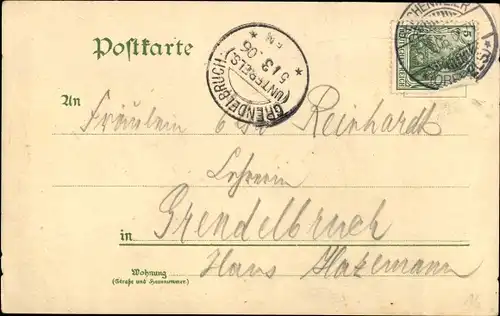 Postkarte
GRENDELBRUCH
(UNTERELS.)
5/3 06
5
An
Fräulein Reinhardt
Lehrerin
in Grendelbruch
Wohnung
(Straße und Hausnummer)
Haus Hazemann